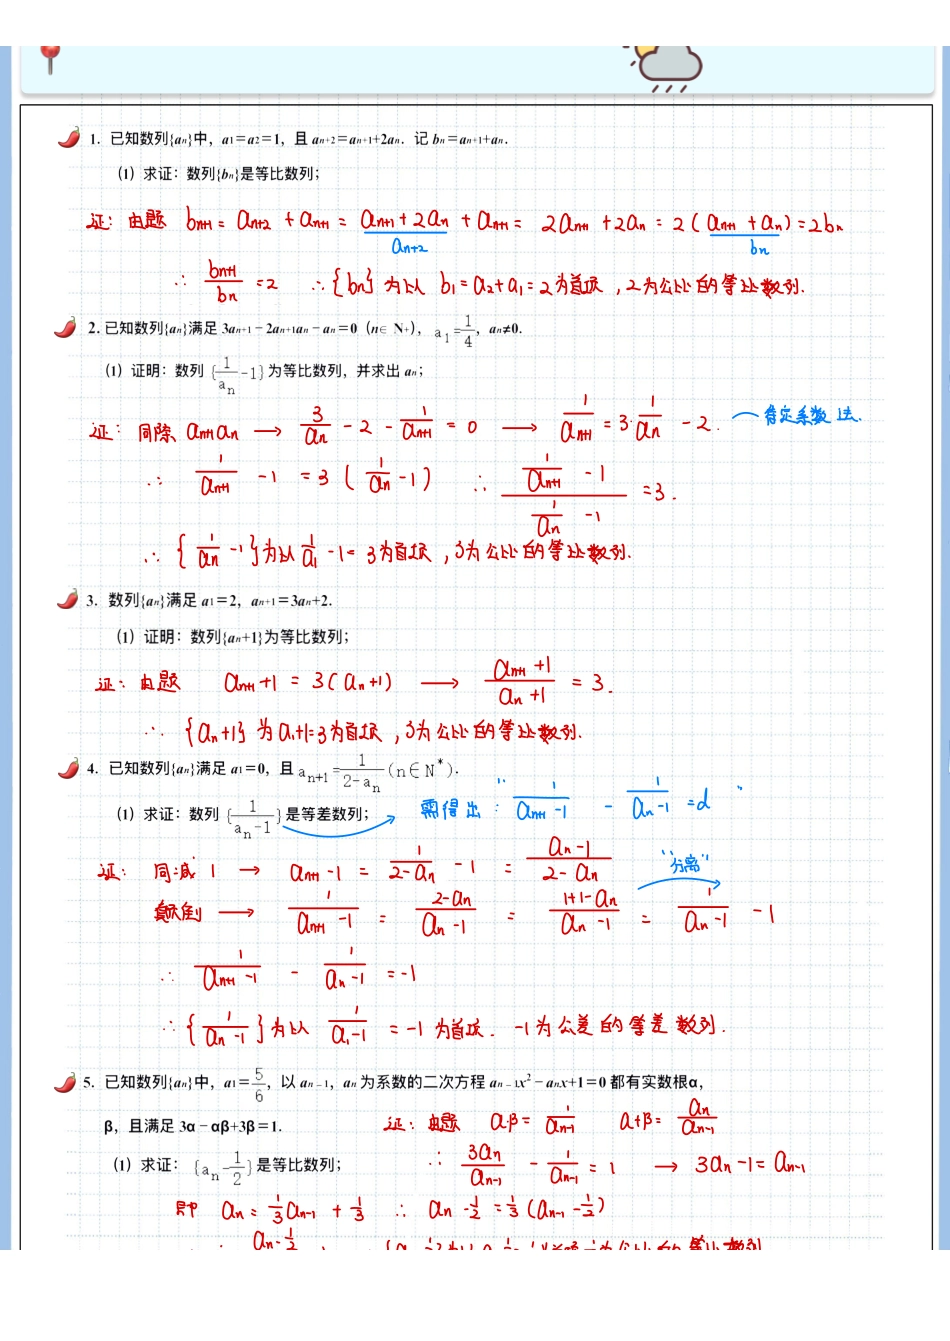 1. 已知数列{an}中，a1=a2=1，且 an+2=an+1+2an．记 bn=an+1+an．
（1）求证：数列{bn}是等比数列；
证：由题 bn+1 = an+2 + an+1 = an+1 + 2an + an+1 = 2an+1 + 2an = 2(an+1 + an) = 2bn
an+2 bn
∴ bn+1/bn = 2 ∴{bn}为以 b1=a2+a1=2为首项，2为公比的等比数列.
2. 已知数列{an}满足 3an+1－2an+1an－an=0（n∈ N+），a1=1/4，an≠0.
（1）证明：数列 {1/an-1}为等比数列，并求出 an；
证：同除 an+1an → 3/an - 2 - 1/an+1 = 0 → 1/an+1 = 3·1/an - 2. 待定系数法.
∴ 1/an+1 - 1 = 3(1/an - 1) ∴ (1/an+1 - 1)/(1/an - 1) = 3.
∴ {1/an - 1}为以 1/a1 - 1 = 3为首项，3为公比的等比数列.
3. 数列{an}满足 a1=2，an+1=3an+2.
（1）证明：数列{an+1}为等比数列；
证：由题 an+1+1 = 3(an+1) → (an+1+1)/(an+1) = 3.
∴ {an+1}为a1+1=3为首项，3为公比的等比数列.
4. 已知数列{an}满足 a1=0，且 an+1=1/(2-an)(n∈N*)．
（1）求证：数列 {1/(an-1)}是等差数列； 需得出："1/(an+1-1) - 1/(an-1) = d"
证：同减1 → an+1-1 = 1/(2-an) - 1 = (an-1)/(2-an) "分离"
颠倒 → 1/(an+1-1) = (2-an)/(an-1) = (1+1-an)/(an-1) = 1/(an-1) - 1
∴ 1/(an+1-1) - 1/(an-1) = -1
∴ {1/(an-1)}为以 1/(a1-1) = -1为首项．-1为公差的等差数列．
5. 已知数列{an}中，a1=5/6，以 an－1，an 为系数的二次方程 an－1x²－anx+1=0 都有实数根α，
β，且满足 3α－αβ+3β=1. 证：由题 α·β=1/an-1 α+β=an/an-1
（1）求证：{an-1/2}是等比数列； ∴ 3an/an-1 - 1/an-1 = 1 → 3an-1=an-1
即 an = 1/3an-1 + 1/3 ∴ an-1/2=1/3(an-1-1/2)